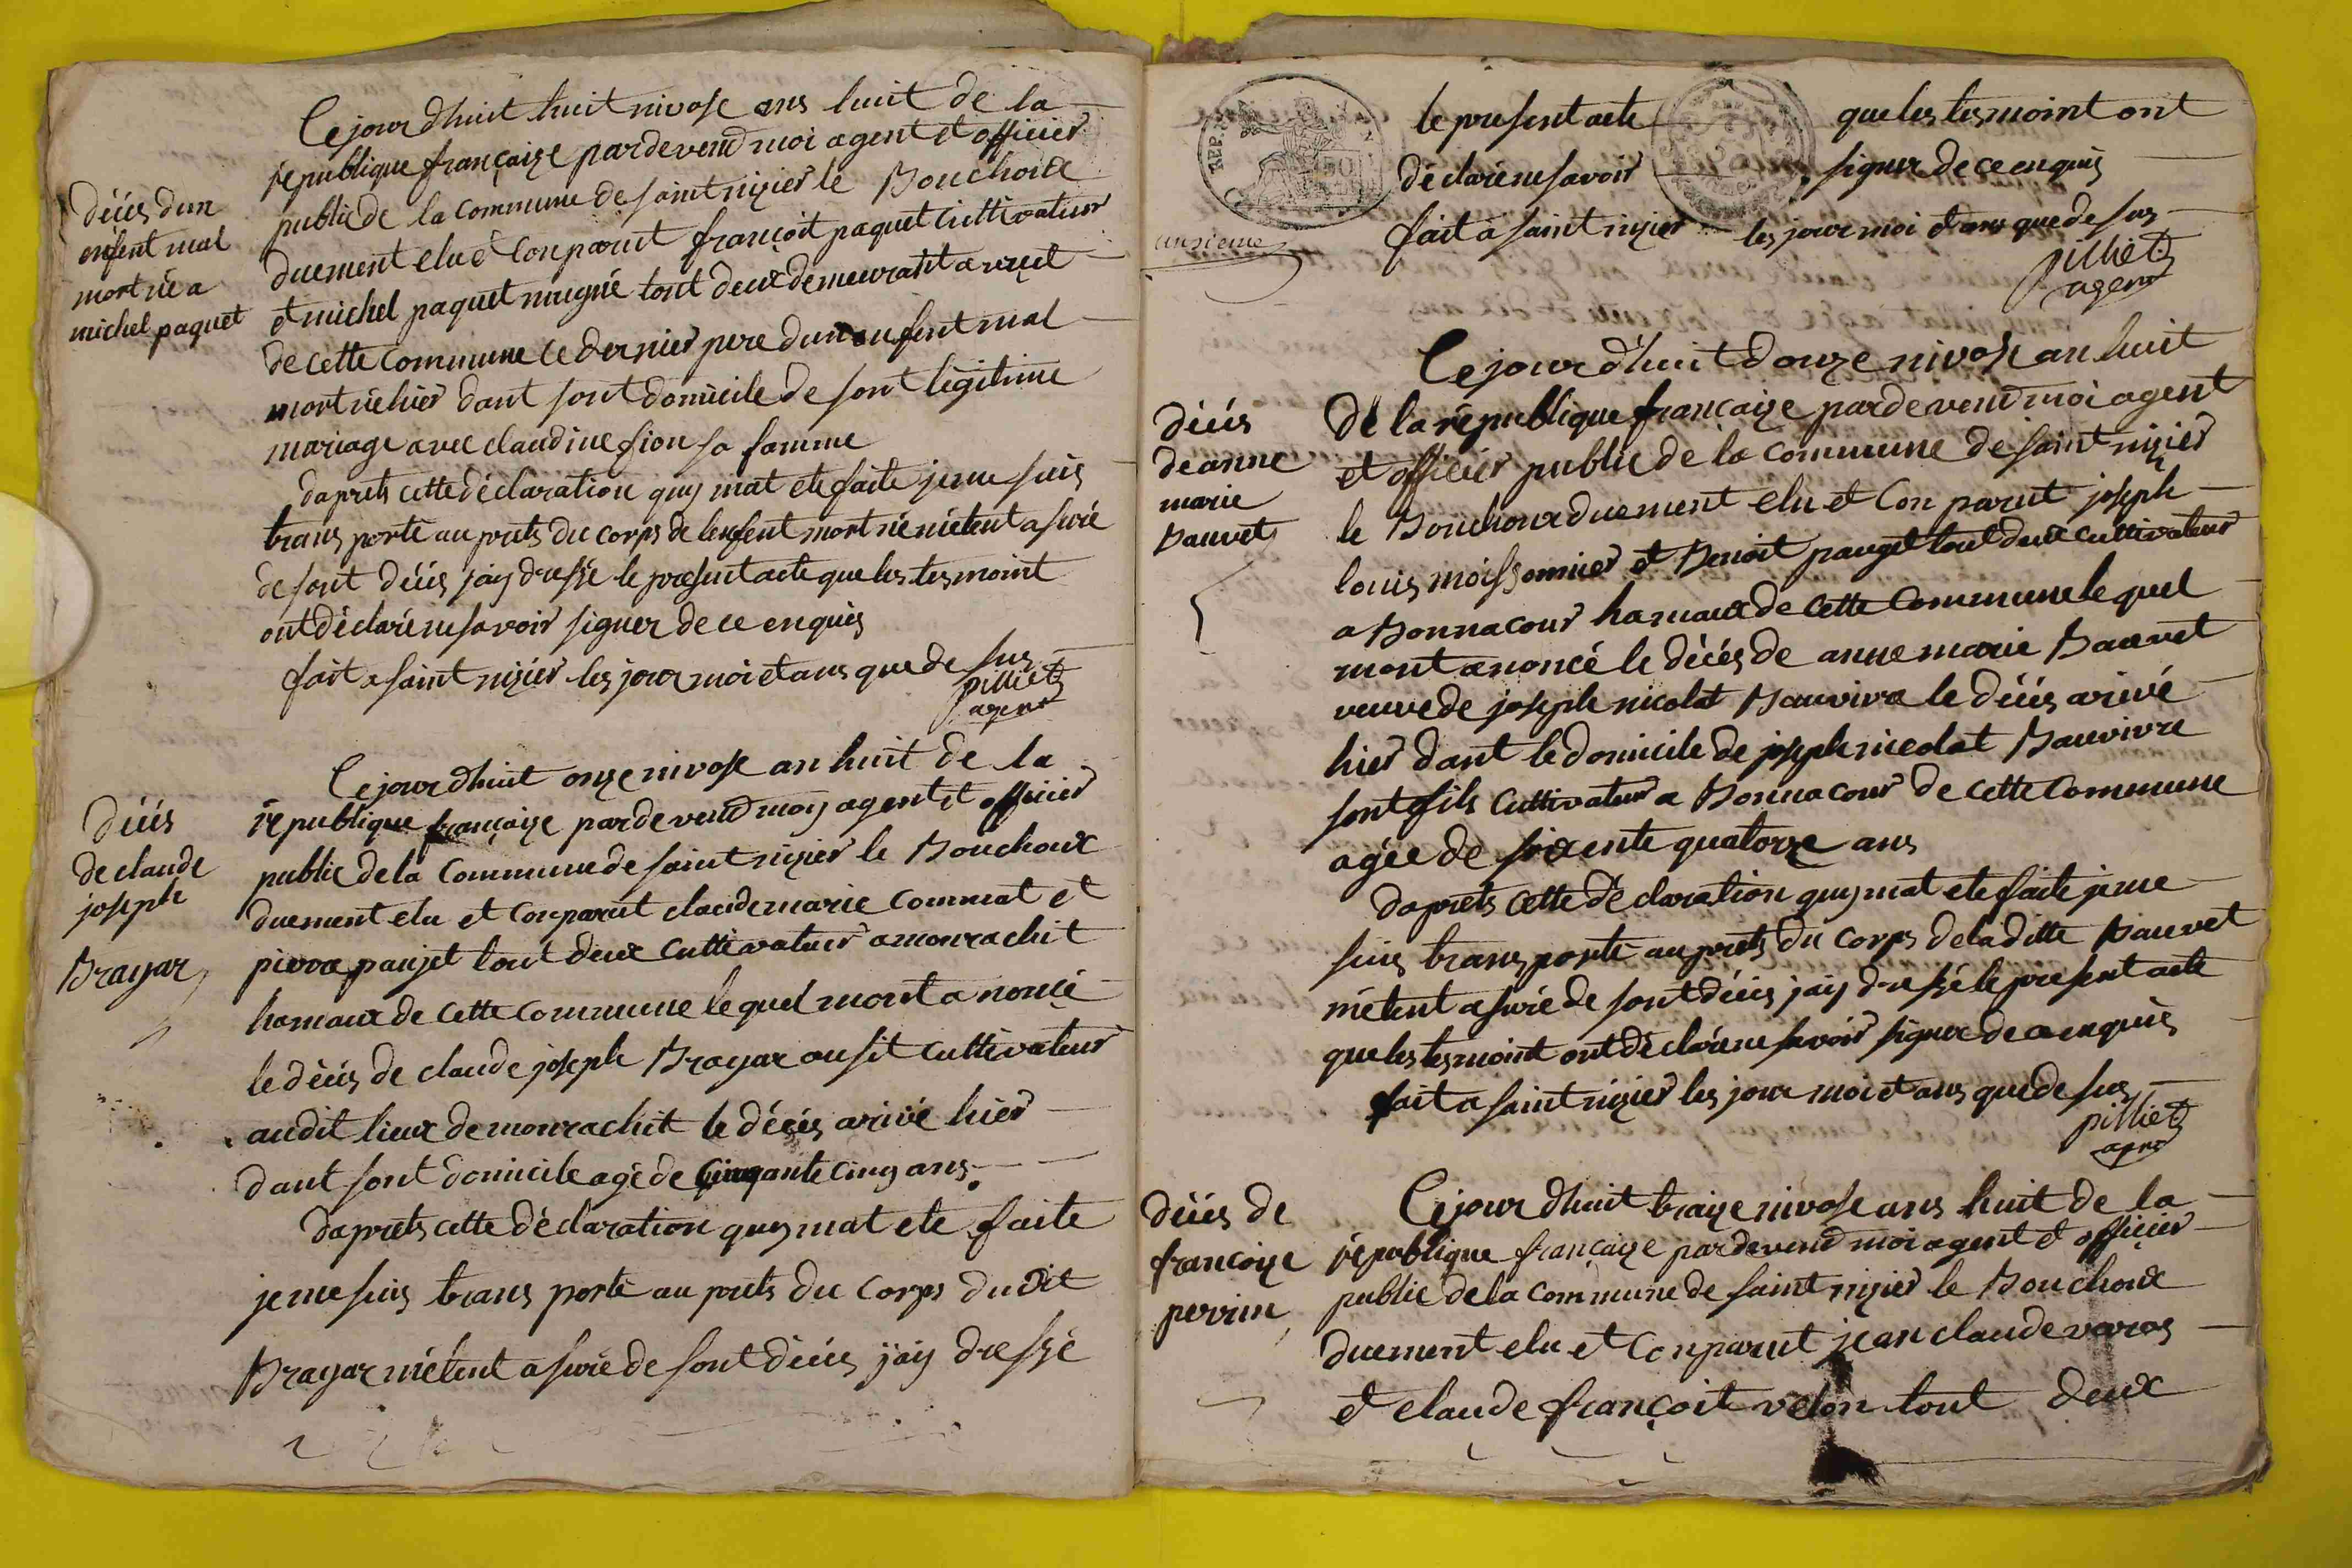 Cejourdhuit huit nivose ans huit de la
republique françaize pardevend moi agent et officier
public de la commune de saint nizier le Bouchoux
duement elu et Conparut françoit paquet Cultivateur
et michel paquet mugnié tout deux demeurant a
de cette Commune ce dernier pere dun enfent mal
mort né hier dant sont domicile de sont légitime
mariage avec claudine fion sa famme
daprets cette déclaration quy mat ete faite jeme suis
trans porté au prets du corps de lenfent mort né métent asuré
de sont décés jay dressé le present acte que les tesmoint
ont déclaré ne savoir signer de ce enquis
fait a saint nizier les jour moi et ans que de sus
pilliet
agent
décés dun
enfent mal
mort né a
michel paquet
Cejourdhuit onze nivose an huit de la
republique françaize pardevend moy agent et officier
public de la Commune de saint nizier le Bouchoux
duement elu et Conparut claude marie Commat et
pierre paujet tout deux Cultivateur a monrachit
hamaux de cette commune le quel mont a noncé
le décés de claude joseph Brayar ousit Cultivateur
audit lieux de monrachit le décés arivé hier
dant sont domicile agé de Cinquante cinq ans
daprets cette déclaration quy mat ete faite
jeme suis trans porté au prets du Corps dudit
Brayar métent asuré de sont décés jay dressé
décés
de claude
joseph
Brayar
le present acte que les tesmoint ont
déclaré ne savoir signer de ce enquis
fait a saint nizier les jour moi et ans que de sus
pilliet
agent
onzieme
REP.
Cejourdhuit douze nivose an huit
De la république françaize pardevend moi agent
et officier public de la commune de saint nizier
le Bouchoux duement elu et Con parut joseph
louis moissonnier et Benoit pauget tout deux cultivateur
a Bonnacour hamaux de cette Commune le quel
mont anoncé le décés de anne marie Bauvet
veuve de joseph nicolat Bauvivre le décés arivé
hier dant le domicile de joseph nicolat Bauvivre
sont fils Cultivateur a Bonnacour de cette Commune
agée de soixente quatorze ans
daprets cette déclaration quy mat ete faite jeme
suis trans porté au prets du Corps de laditte Bauvet
métent asuré de sont décés jay dressé le present acte
que les tesmoint ont déclaré ne savoir signer de ce enquis
fait a saint nizier les jour moi et ans que de sus
pilliet
agent
décés
de anne
marie
Bauvet
Cejourdhuit traize nivose ans huit de la
république françaize pardevend moi agent et officier
public de la commune de saint nizier le Bouchoux
duement elu et Conparut jean claude varas
et claude françoit velon tout deux
décés de
françoize
perrin